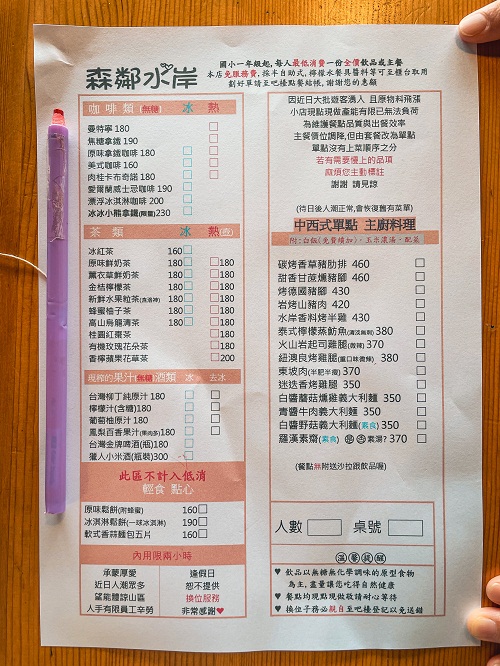 森鄰水岸
國小一年級起,每人最低消費一份全價飲品或主餐
本店免服務費,採半自助式,檸檬水餐具醬料等可至櫃台取用
劃好單請至吧檯點餐結帳,謝謝您的惠顧
咖啡類(無糖) 冰 熱
曼特寧 180 □
焦糖拿鐵 190 □
原味拿鐵咖啡 180 □ □
美式咖啡 160 □ □
肉桂卡布奇諾 180 □ □
愛爾蘭威士忌咖啡 190 □
漂浮冰淇淋咖啡 200 □
冰冰小熊拿鐵(限量)230 □
茶類 冰 熱(壺)
冰紅茶 160□
原味鮮奶茶 180□ □180
薰衣草鮮奶茶 180□ □180
金桔檸檬茶 180□ □180
新鮮水果粒茶 180□ □180
蜂蜜柚子茶 180□ □180
高山烏龍清茶 180□ □180
桂圓紅棗茶 □180
有機玫瑰花朵茶 □180
香檸蘋果花草茶 □200
現榨的果汁(無糖)酒類 冰 去冰
台灣柳丁純原汁 180 □ □
檸檬汁(含糖)180 □ □
葡萄柚原汁 180 □ □
鳳梨百香果汁(果肉多)180 □ □
台灣金牌啤酒(瓶)180 □
獵人小米酒(瓶裝)300 □
此區不計入低消
輕食 點心
原味鬆餅(附蜂蜜) 160□
冰淇淋鬆餅(一球冰淇淋) 190□
軟式香蒜麵包五片 160□
內用限兩小時
承蒙厚愛
近日人潮眾多
望能體諒山區
人手有限員工辛勞
逢假日
恕不提供
換位服務
非常感謝♥
因近日大批遊客湧入 且原物料飛漲
小店現點現做產能有限已無法負荷
為維護餐點品質與出餐效率
主餐價位調降,但由套餐改為單點
單點沒有上菜順序之分
若有需要慢上的品項
麻煩您主動標註
謝謝 請見諒
(待日後人潮正常,會恢復舊有菜單)
中西式單點 主廚料理
附:白飯(免費續加)、玉米濃湯、配菜
碳烤香草豬肋排 460 □
甜香甘蔗燻豬腳 460 □
烤德國豬腳 430 □
岩烤山豬肉 420 □
水岸香料烤半雞 430 □
泰式檸檬蒸魴魚 380 □
火山岩起司雞腿(微辣) 370 □
紐澳良烤雞腿(重口味微辣) 380 □
東坡肉(半肥半瘦) 370 □
迷迭香烤雞腿 350 □
白醬蘑菇燻雞義大利麵 350 □
青醬牛肉義大利麵 350 □
白醬野菇義大利麵(素食) 350 □
羅漢素齋(素食) 素湯? 370 □
(餐點無附送沙拉跟飲品喔)
人數 桌號
溫馨提醒
♥ 飲品以無糖無化學調味的原型食物
為主,盡量讓您吃得自然健康
♥ 餐點均現點現做敬請耐心等待
♥ 換位子務必親自至吧檯登記以免送錯